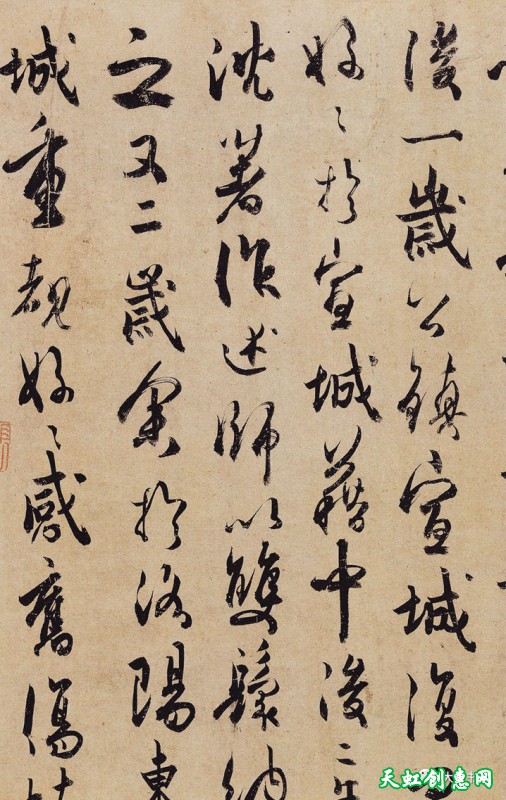 後一歲公鎮宣城復
好〻於宣城藉中後二
沈著作述師以雙鬟納
之又二歲余於洛陽東
城重覩好〻感舊傷
天虹创惠网